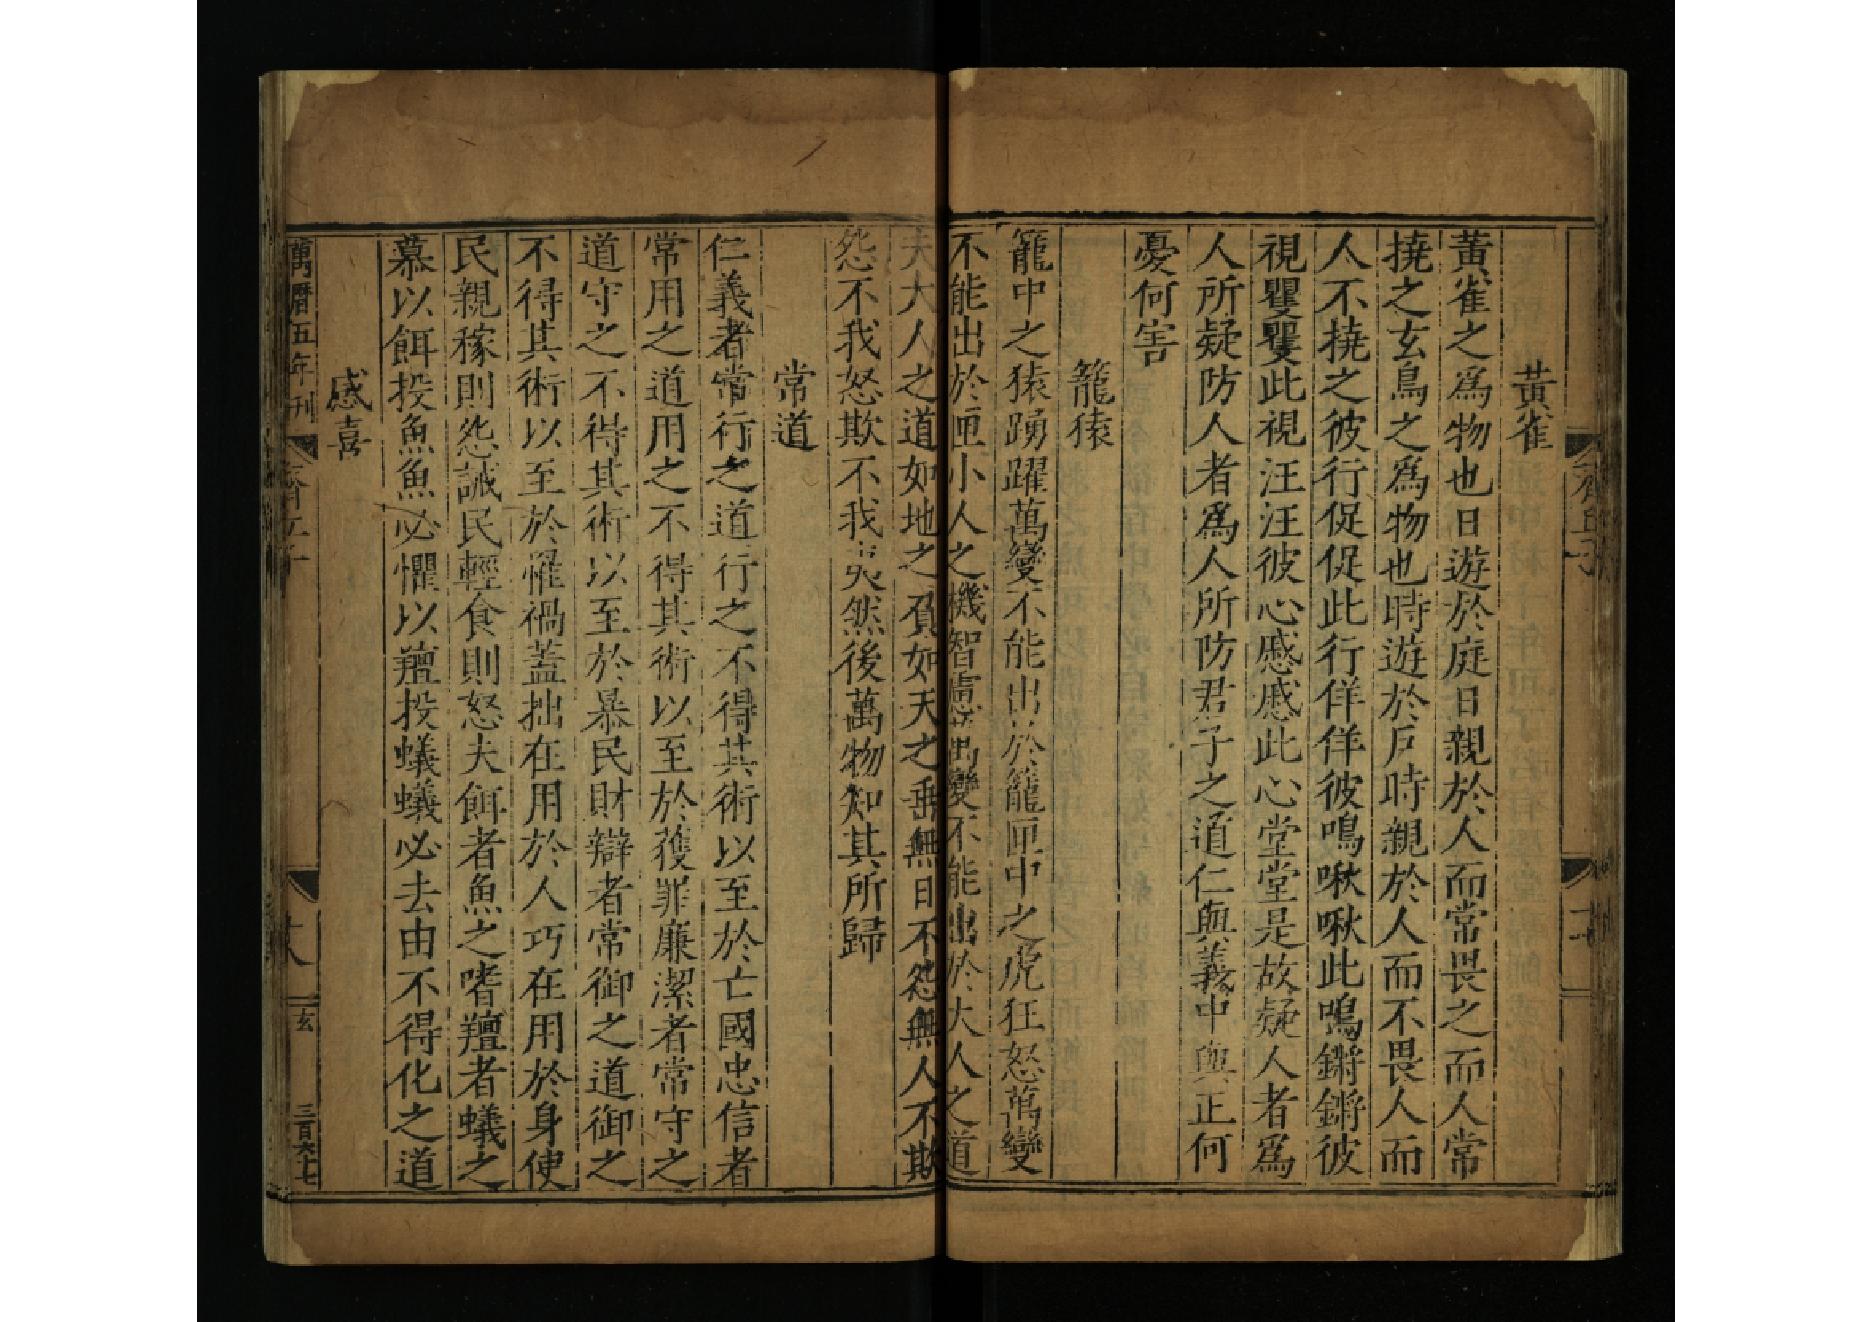 黃雀
黃雀之爲物也日遊於庭日親於人而常畏之而人常
撓之玄鳥之爲物也時遊於戶時親於人而不畏人而
人不撓之彼行促促此行佯佯彼鳴啾啾此鳴鏘鏘彼
視矍矍此視汪汪彼心慼慼此心堂堂是故疑人者爲
人所疑防人者爲人所防君子之道仁與義中與正何
憂何害
籠猿
籠中之猿踴躍萬變不能出於籠匣中之虎狂怒萬變
不能出於匣小人之機智慮萬變不能出於大人之道
夫大人之道如地之負如天之垂無日不怨無人不欺
怨不我怒欺不我夷然後萬物知其所歸
常道
仁義者常行之道行之不得其術以至於亡國忠信者
常用之道用之不得其術以至於獲罪廉潔者常守之
道守之不得其術以至於暴民財辯者常御之道御之
不得其術以至於罹禍蓋拙在用於人巧在用於身使
民親稼則怨誡民輕食則怒夫餌者魚之嗜羶者蟻之
慕以餌投魚魚必懼以羶投蟻蟻必去由不得化之道
感喜
萬曆五年刊
齊丘子
玄
三百六十七